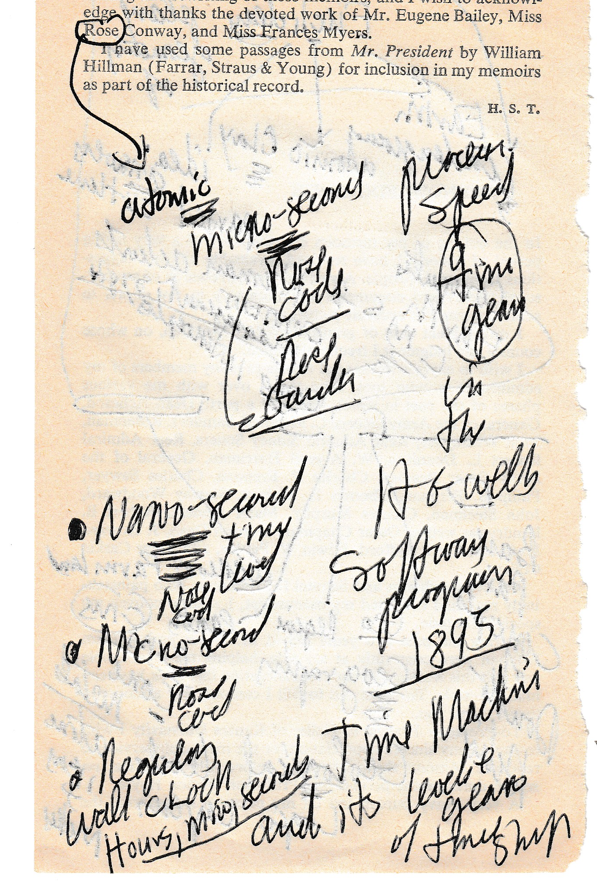 edge with thanks the devoted work of Mr. Eugene Bailey, Miss
Rose Conway, and Miss Frances Myers.
I have used some passages from Mr. President by William
Hillman (Farrar, Straus & Young) for inclusion in my memoirs
as part of the historical record.
H. S. T.
atomic
micro-second
Rose
code
Rose
Garden
Speed
time
gears
in
the
H G wells
Software
program
1895
Time Machine
and its
gears
of timeship
Nano-second
time
level
code
Micro-second
Regular
wall clock
Hours, min, seconds